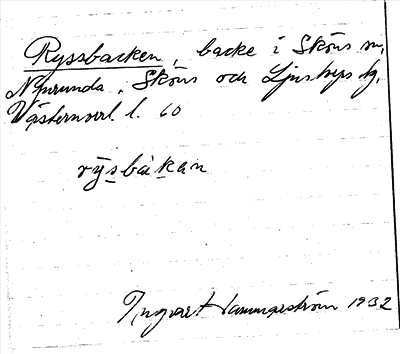 Ryssbacken, backe i Sköns sn,
Njurunda, Sköns och Ljustorps tg,
Västernorrl. l. 60
rysbakan
Ingvar Hammarström 1932